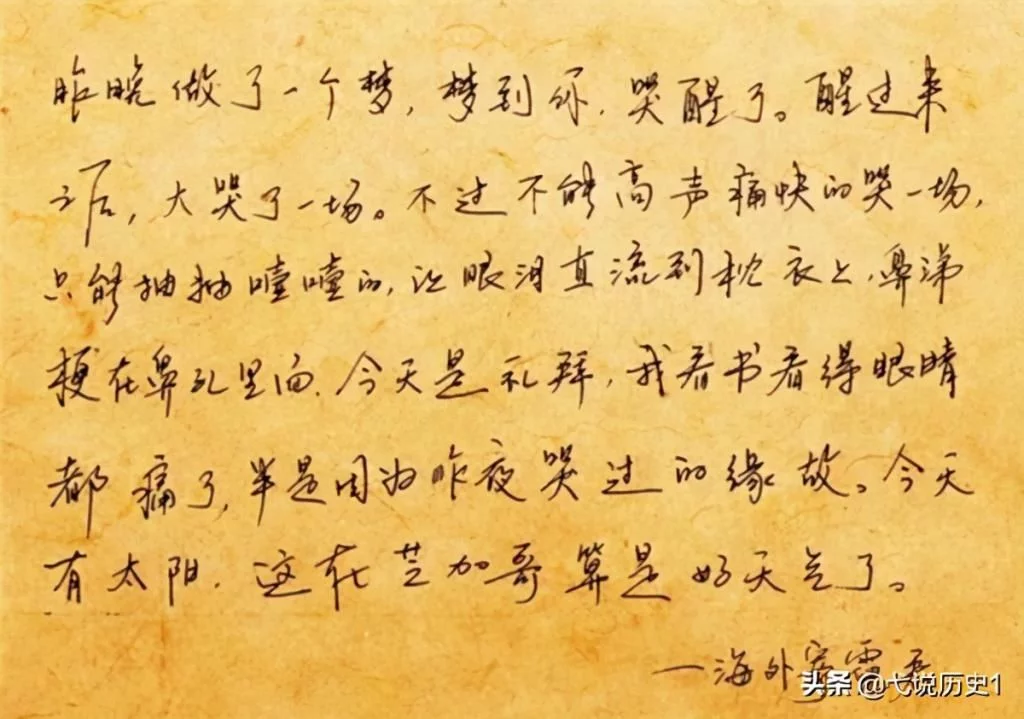 昨晚做了一个梦，梦到你，哭醒了。醒过来
之后，大哭了一场。不过不能高声痛快的哭一场，
只能抽抽噎噎的，让眼泪直流到枕衣上，鼻涕
梗在鼻孔里面。今天是礼拜，我看书看得眼睛
都痛了，半是因为昨夜哭过的缘故。今天
有太阳，这在芝加哥算是好天气了。
—海外寄霓君
头条@弋说历史1